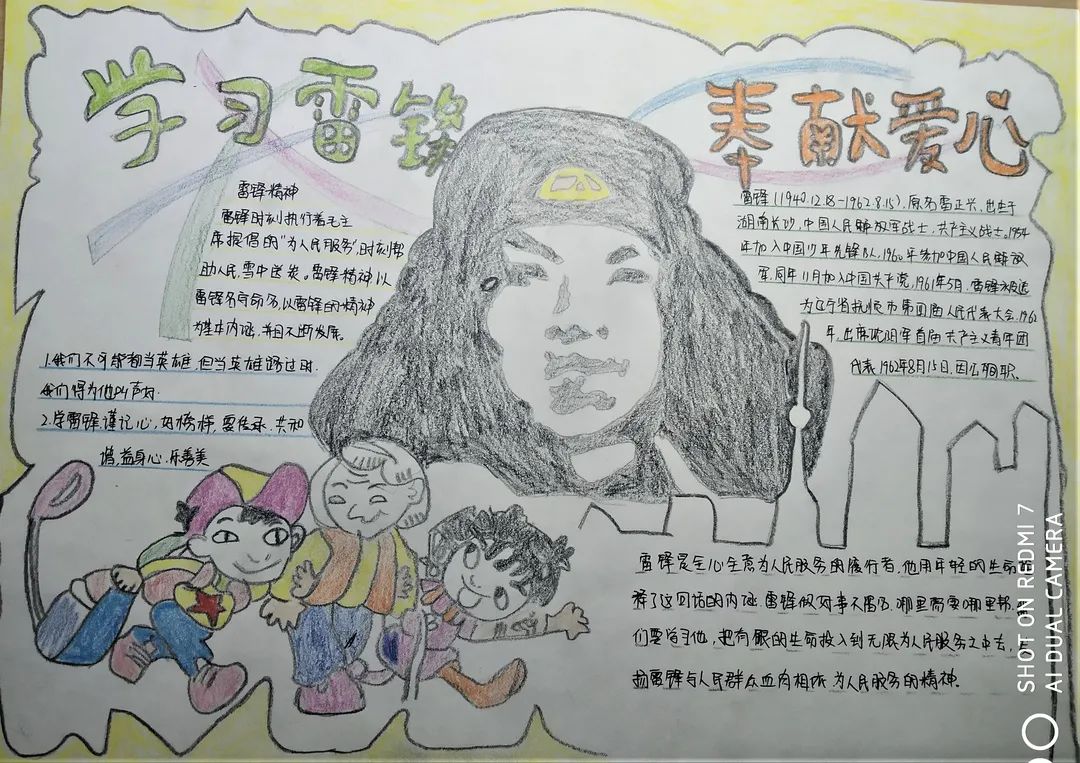 学习雷锋
奉献爱心
雷锋精神
雷锋时刻执行着毛主
席提倡的“为人民服务”时刻帮
助人民,雪中送炭。雷锋精神,以
雷锋名字命名,以雷锋的精神
为基本内涵,并且不断发展。
1.我们不可能都当英雄,但当英雄路过时.
我们得为他叫声好.
2.学雷锋,谨记心,好榜样,要传承.共和
谐,益身心.乐善美
雷锋(1940.12.18-1962.8.15),原名雷正兴,出生于
湖南长沙,中国人民解放军战士,共产主义战士.1954
年加入中国少年先锋队,1960年参加中国人民解放
军,同年11月加入中国共产党,1961年5月,雷锋被选
为辽宁省抚顺市第四届人民代表大会.1962
年,出席沈阳军首届共产主义青年团
代表.1962年8月15日,因公殉职.
雷锋是全心全意为人民服务的履行者,他用年轻的生命
释了这句话的内涵.雷锋做好事不留名,哪里需要哪里帮.
们要学习他,把有限的生命投入到无限为人民服务之中去,
扬雷锋与人民群众血肉相依,为人民服务的精神.
SHOT ON REDMI 7
AI DUAL CAMERA